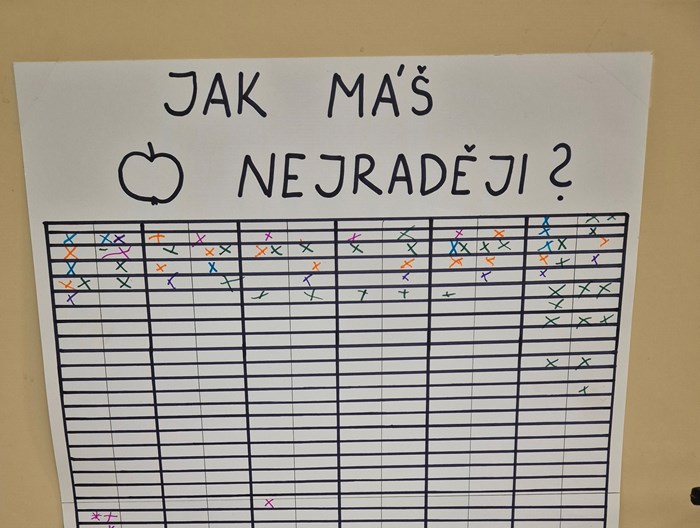 JAK MÁŠ
NEJRADĚJI?